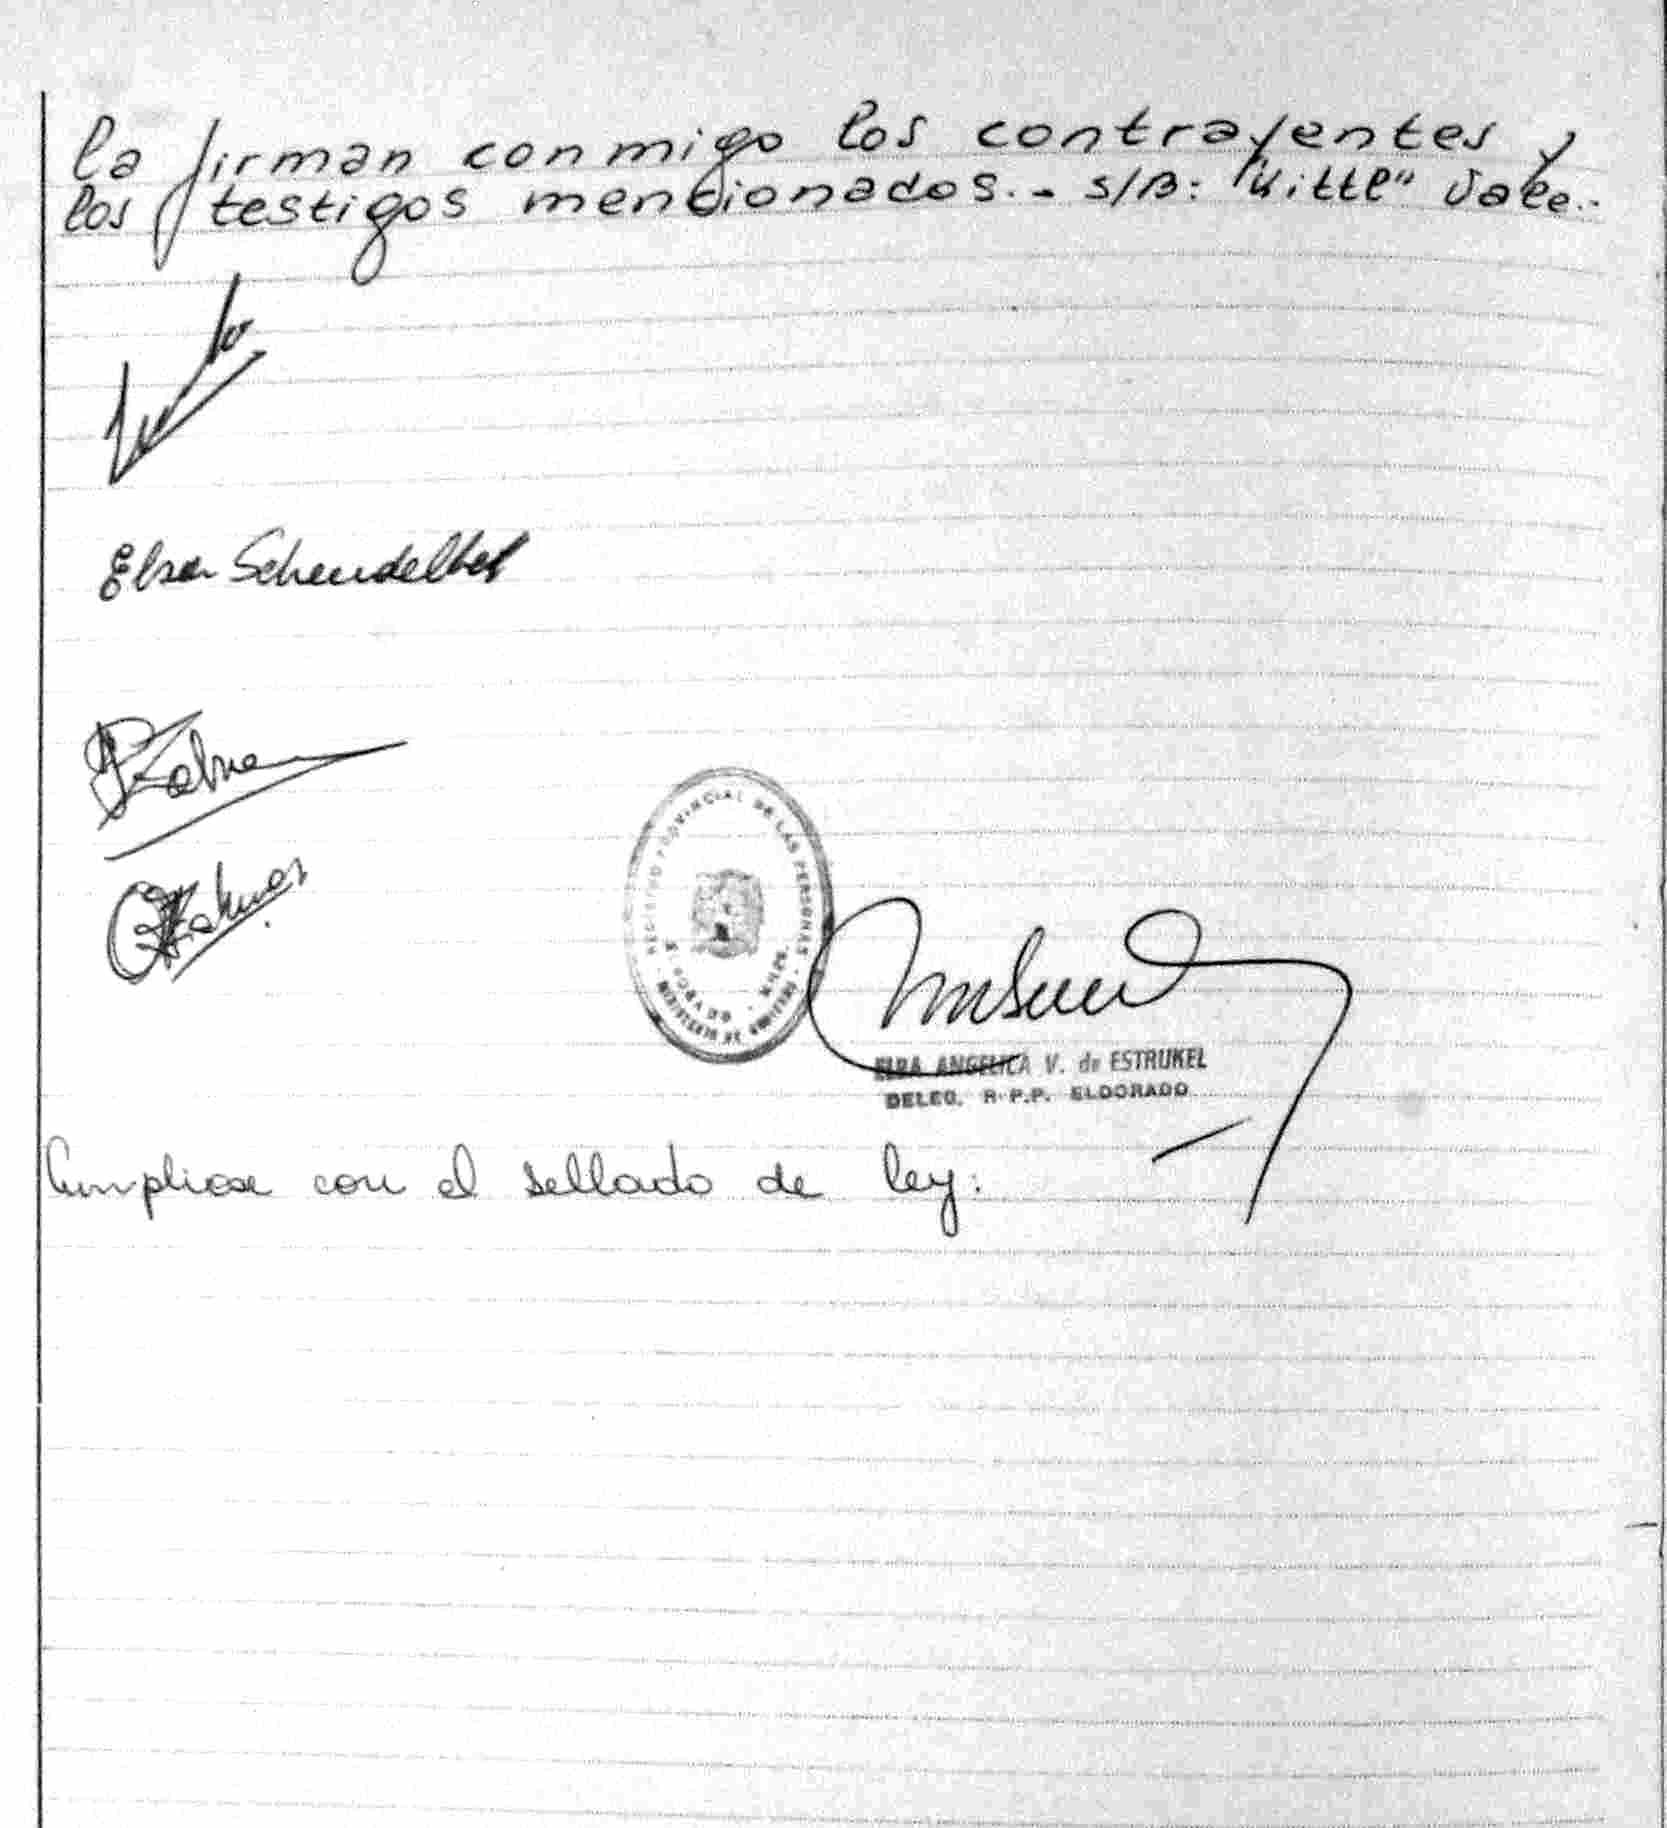 la firman conmigo los contrayentes y
los testigos mencionados.- S/B: "Kittl" Vale.-
Elsa
REGISTRO PROVINCIAL DE LAS PERSONAS
ELDORADO - MNES.
MINISTERIO DE GOBIERNO
ELBA ANGELICA V. de ESTRUKEL
DELEG. R.P.P. ELDORADO
Cumpliose con el sellado de ley: